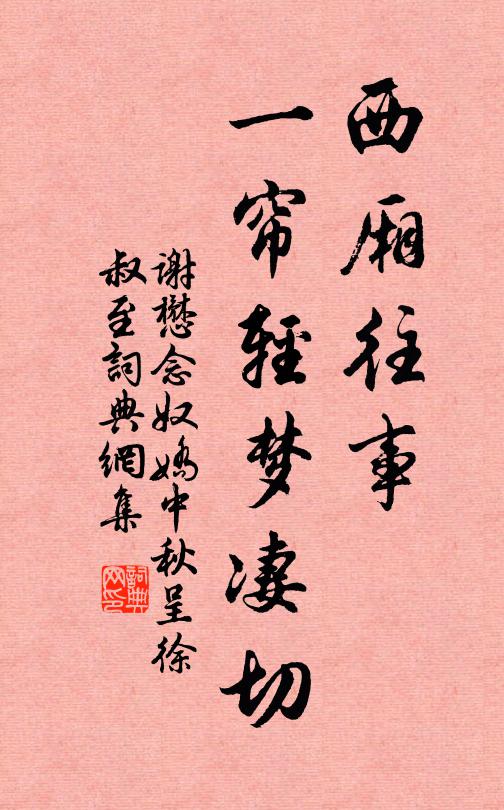 西厢往事
一帘轻梦凄切
谢懋念奴娇中秋呈徐
叔至詞典網集
詞典
网印